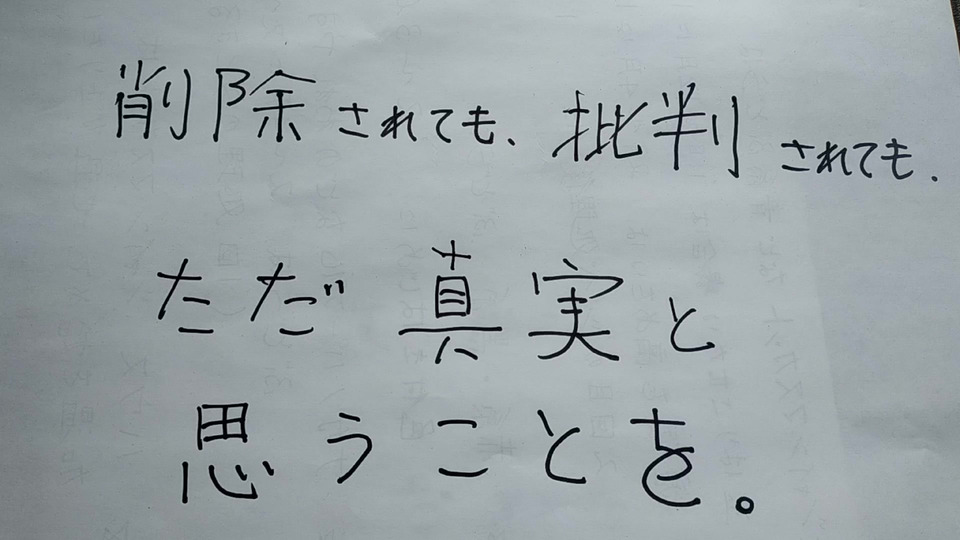 削除されても、批判されても、
ただ真実と
思うことを。